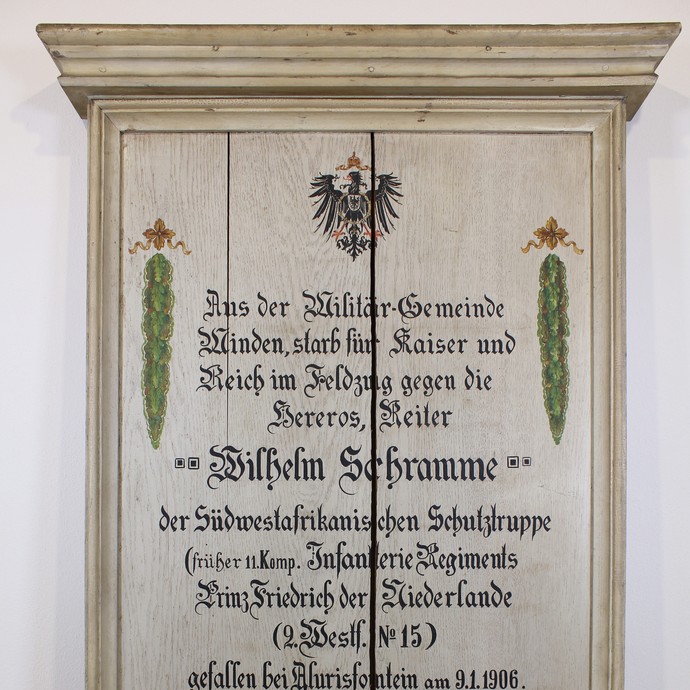 Aus der Militär-Gemeinde
Minden, starb für Kaiser und
Reich im Feldzug gegen die
Hereros, Reiter
Wilhelm Schramme
der Südwestafrikanischen Schutztruppe
(früher 11. Komp. Infanterie Regiments
Prinz Friedrich der Niederlande
(2. Westf. No 15)
gefallen bei Alurisfontein am 9.1.1906.